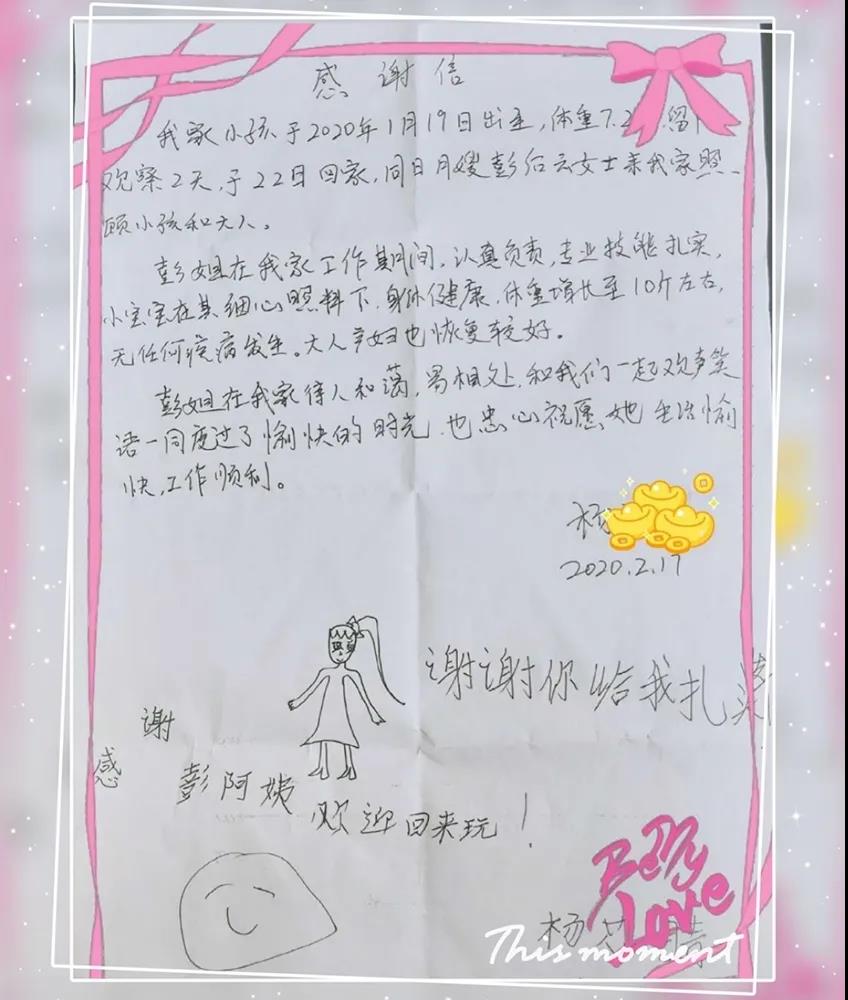 感谢信
我家小孩于2020年1月19日出生,体重7.2 留
观察2天,于22日回家,同日月嫂彭后云女士来我家照
顾小孩和大人。
彭姐在我家工作期间,认真负责,专业技能扎实,
小宝宝在其细心照料下,身体健康,体重增长至10斤左右,
无任何疾病发生。大人产妇也恢复较好。
彭姐在我家待人和蔼,易相处,和我们一起欢声笑
语一同度过了愉快的时光,也忠心祝愿她生活愉
快,工作顺利。
杨
2020.2.17
谢谢你给我扎
感谢
彭阿姨
欢迎回来玩!
Betty
Love
杨 晴
This moment